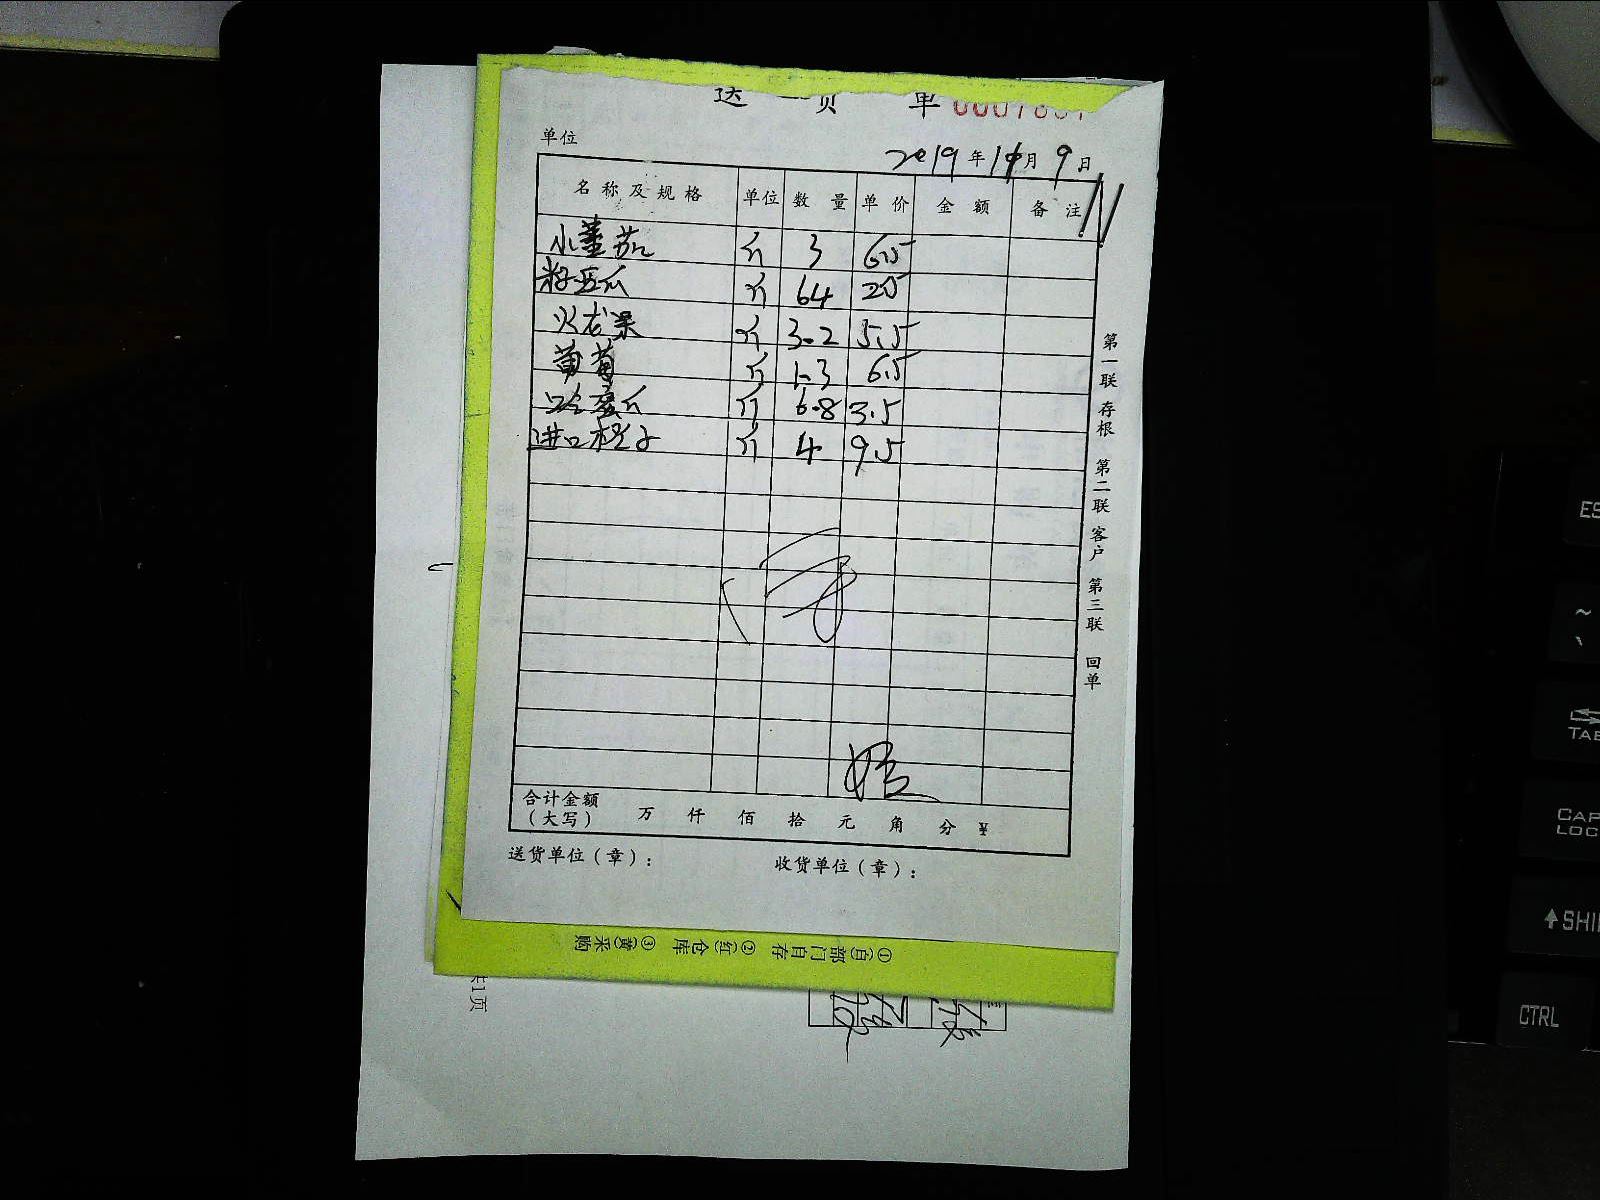 送 货 单
单位
2019年10月9日
名称及规格 单位 数量 单价 金额 备注
小番茄 斤 3 6.5
斤 64 25
火龙果 斤 3.2 5.5
葡萄 斤 1.3 6.5
哈蜜瓜 斤 6.8 3.5
进口橙子 斤 4 9.5
合计金额
(大写) 万 仟 佰 拾 元 角 分 ¥
送货单位(章): 收货单位(章):
第一联 存根 第二联 客户 第三联 回单
①(白)部门自存 ②(红)仓库 ③(黄)采购
共1页
ESC
~
TAB
CAPS
LOCK
SHIFT
CTRL